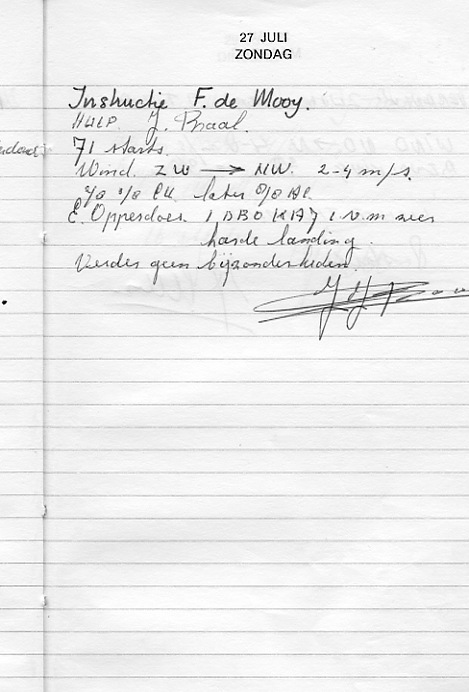 27 JULI
ZONDAG
Instructie F. de Mooy.
HULP. J. Braal.
71 starts.
Wind. ZW → NW. 2-4 m/s.
later
E. Opperdoes 1 DBO KA7 i.v.m zeer
harde landing.
Verder geen bijzonderheden.